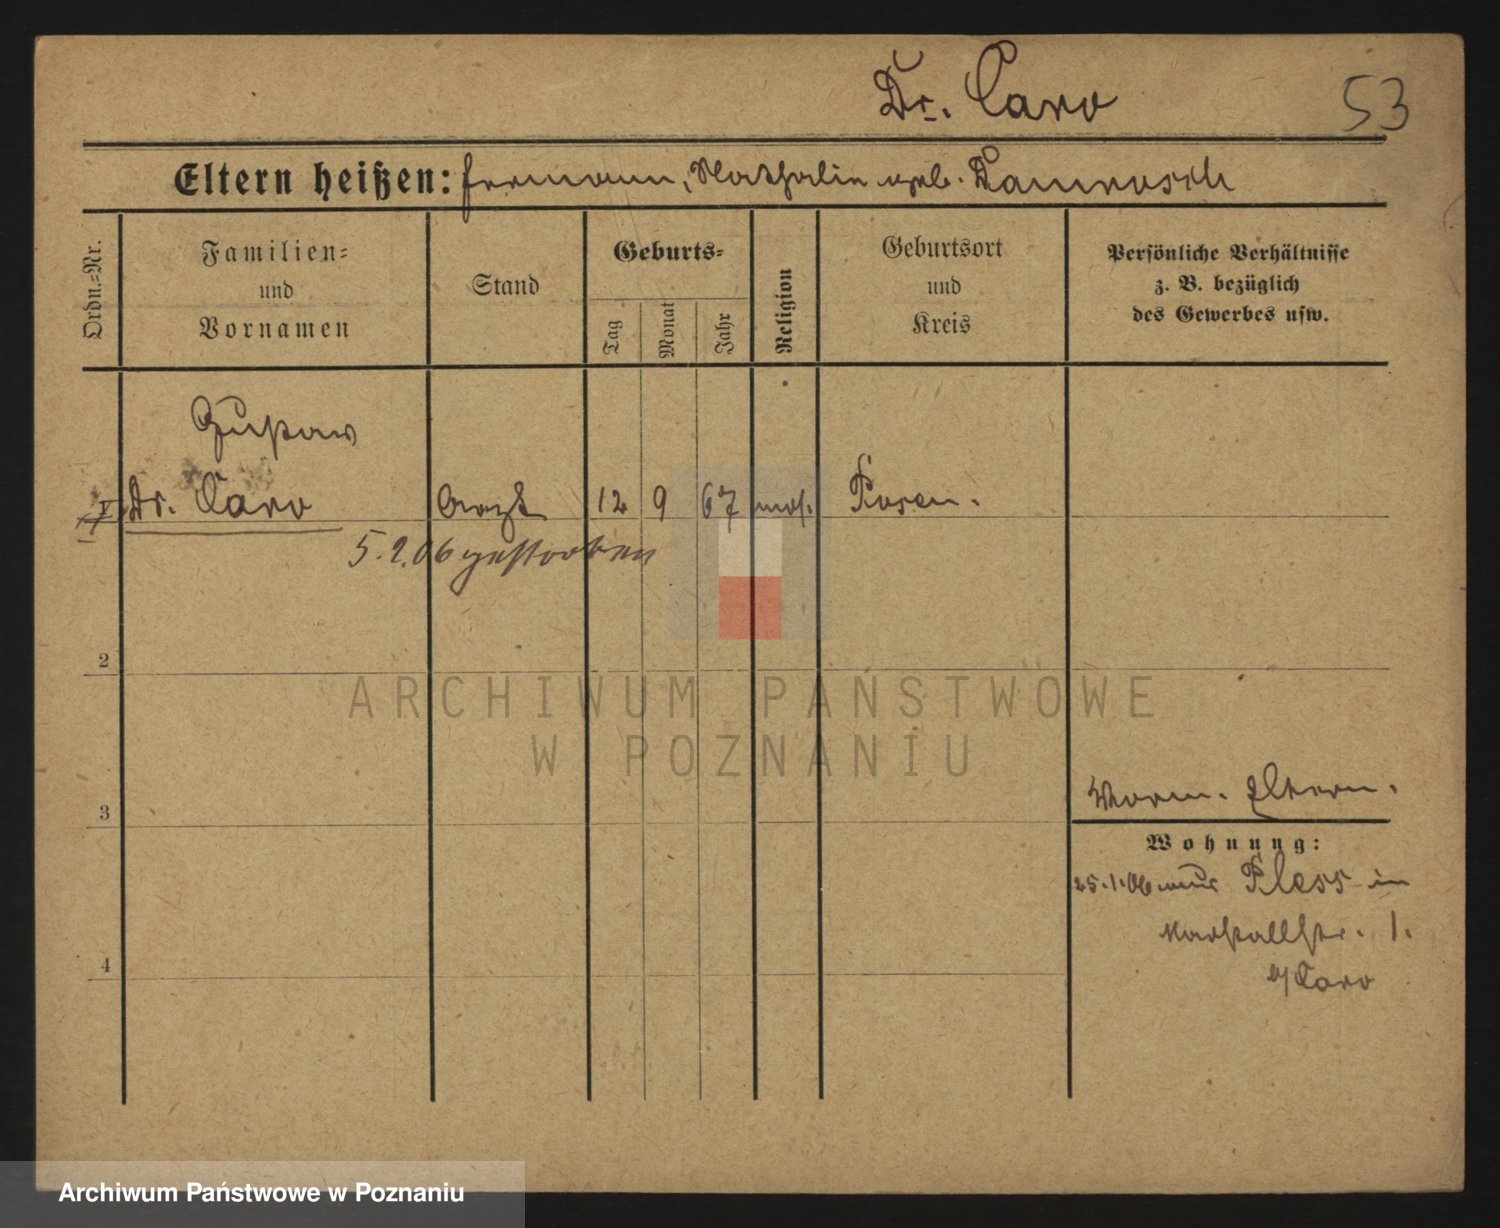 Dr. Caro
53
Eltern heißen: Hermann, Nathalie geb. Damrosch
Ordn.-Nr.
Familien-
und
Vornamen
Stand
Geburts-
Tag
Monat
Jahr
Religion
Geburtsort
und
Kreis
Persönliche Verhältnisse
z. B. bezüglich
des Gewerbes usw.
Gustav
Dr. Caro
Arzt
12
9
67
mos.
Posen.
5.2.06 gestorben
2
3
4
Eltern.
Wohnung:
25.1.06 aus Pless in
Marstallstr. 1.
b/Caro
ARCHIWUM PAŃSTWOWE
W POZNANIU
Archiwum Państwowe w Poznaniu